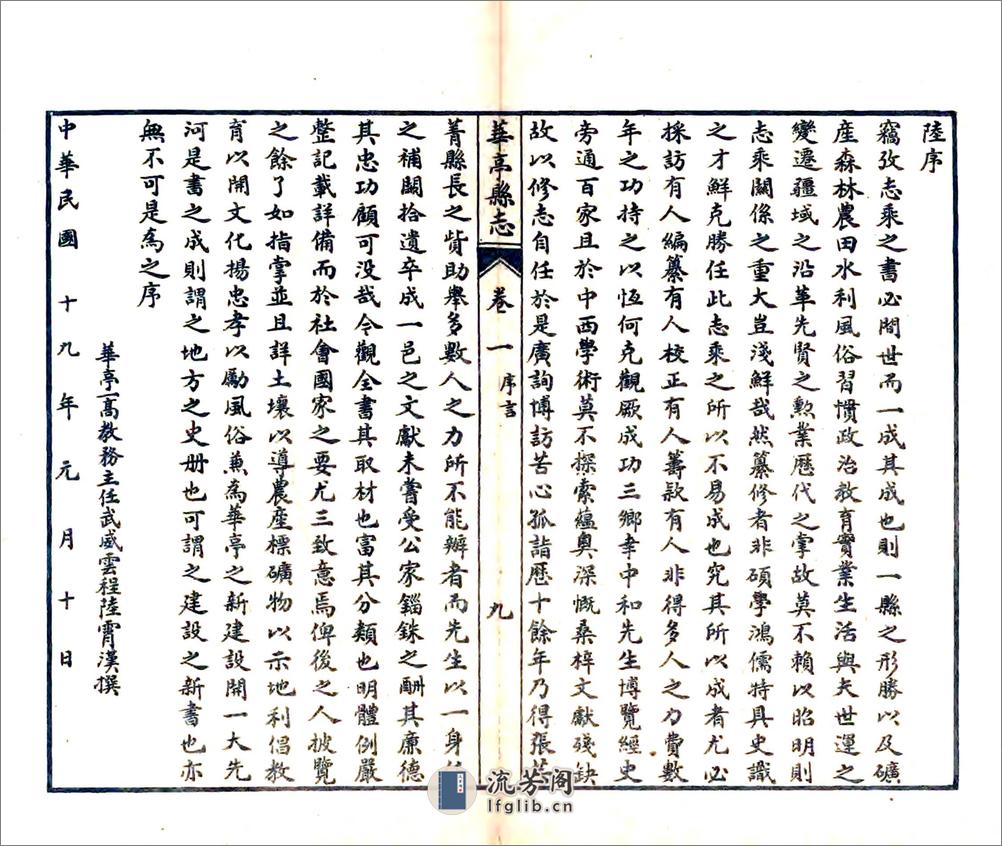 陸序
竊攷志乘之書必閱世而一成其成也則一縣之形勝以及礦
產森林農田水利風俗習慣政治教育實業生活與夫世運之
變遷疆域之沿革先賢之勲業歷代之掌故莫不賴以昭明則
志乘關係之重大豈淺鮮哉然纂修者非碩學鴻儒特具史識
之才鮮克勝任此志乘之所以不易成也究其所以成者尤必
採訪有人編纂有人校正有人籌款有人非得多人之力費數
年之功持之以恆何克觀厥成功三鄉幸中和先生博覽經史
旁通百家且於中西學術莫不探索蘊奧深慨桑梓文獻殘缺
故以修志自任於是廣詢博訪苦心孤詣歷十餘年乃得張
華亭縣志 卷一 序言 九
菁縣長之貲助舉多數人之力所不能辦者而先生以一身
之補闕拾遺卒成一邑之文獻未嘗受公家錙銖之酬其廉德
其忠功顧可没哉今觀全書其取材也富其分類也明體例嚴
整記載詳備而於社會國家之要尤三致意焉俾後之人披覽
之餘了如指掌並且詳土壤以導農產標礦物以示地利倡教
育以開文化揚忠孝以勵風俗兼為華亭之新建設開一大先
河是書之成則謂之地方之史册也可謂之建設之新書也亦
無不可是為之序
華亭一高教務主任武威雲程陸霄漢撰
中華民國十九年元月十日
流芳阁
lfglib.cn